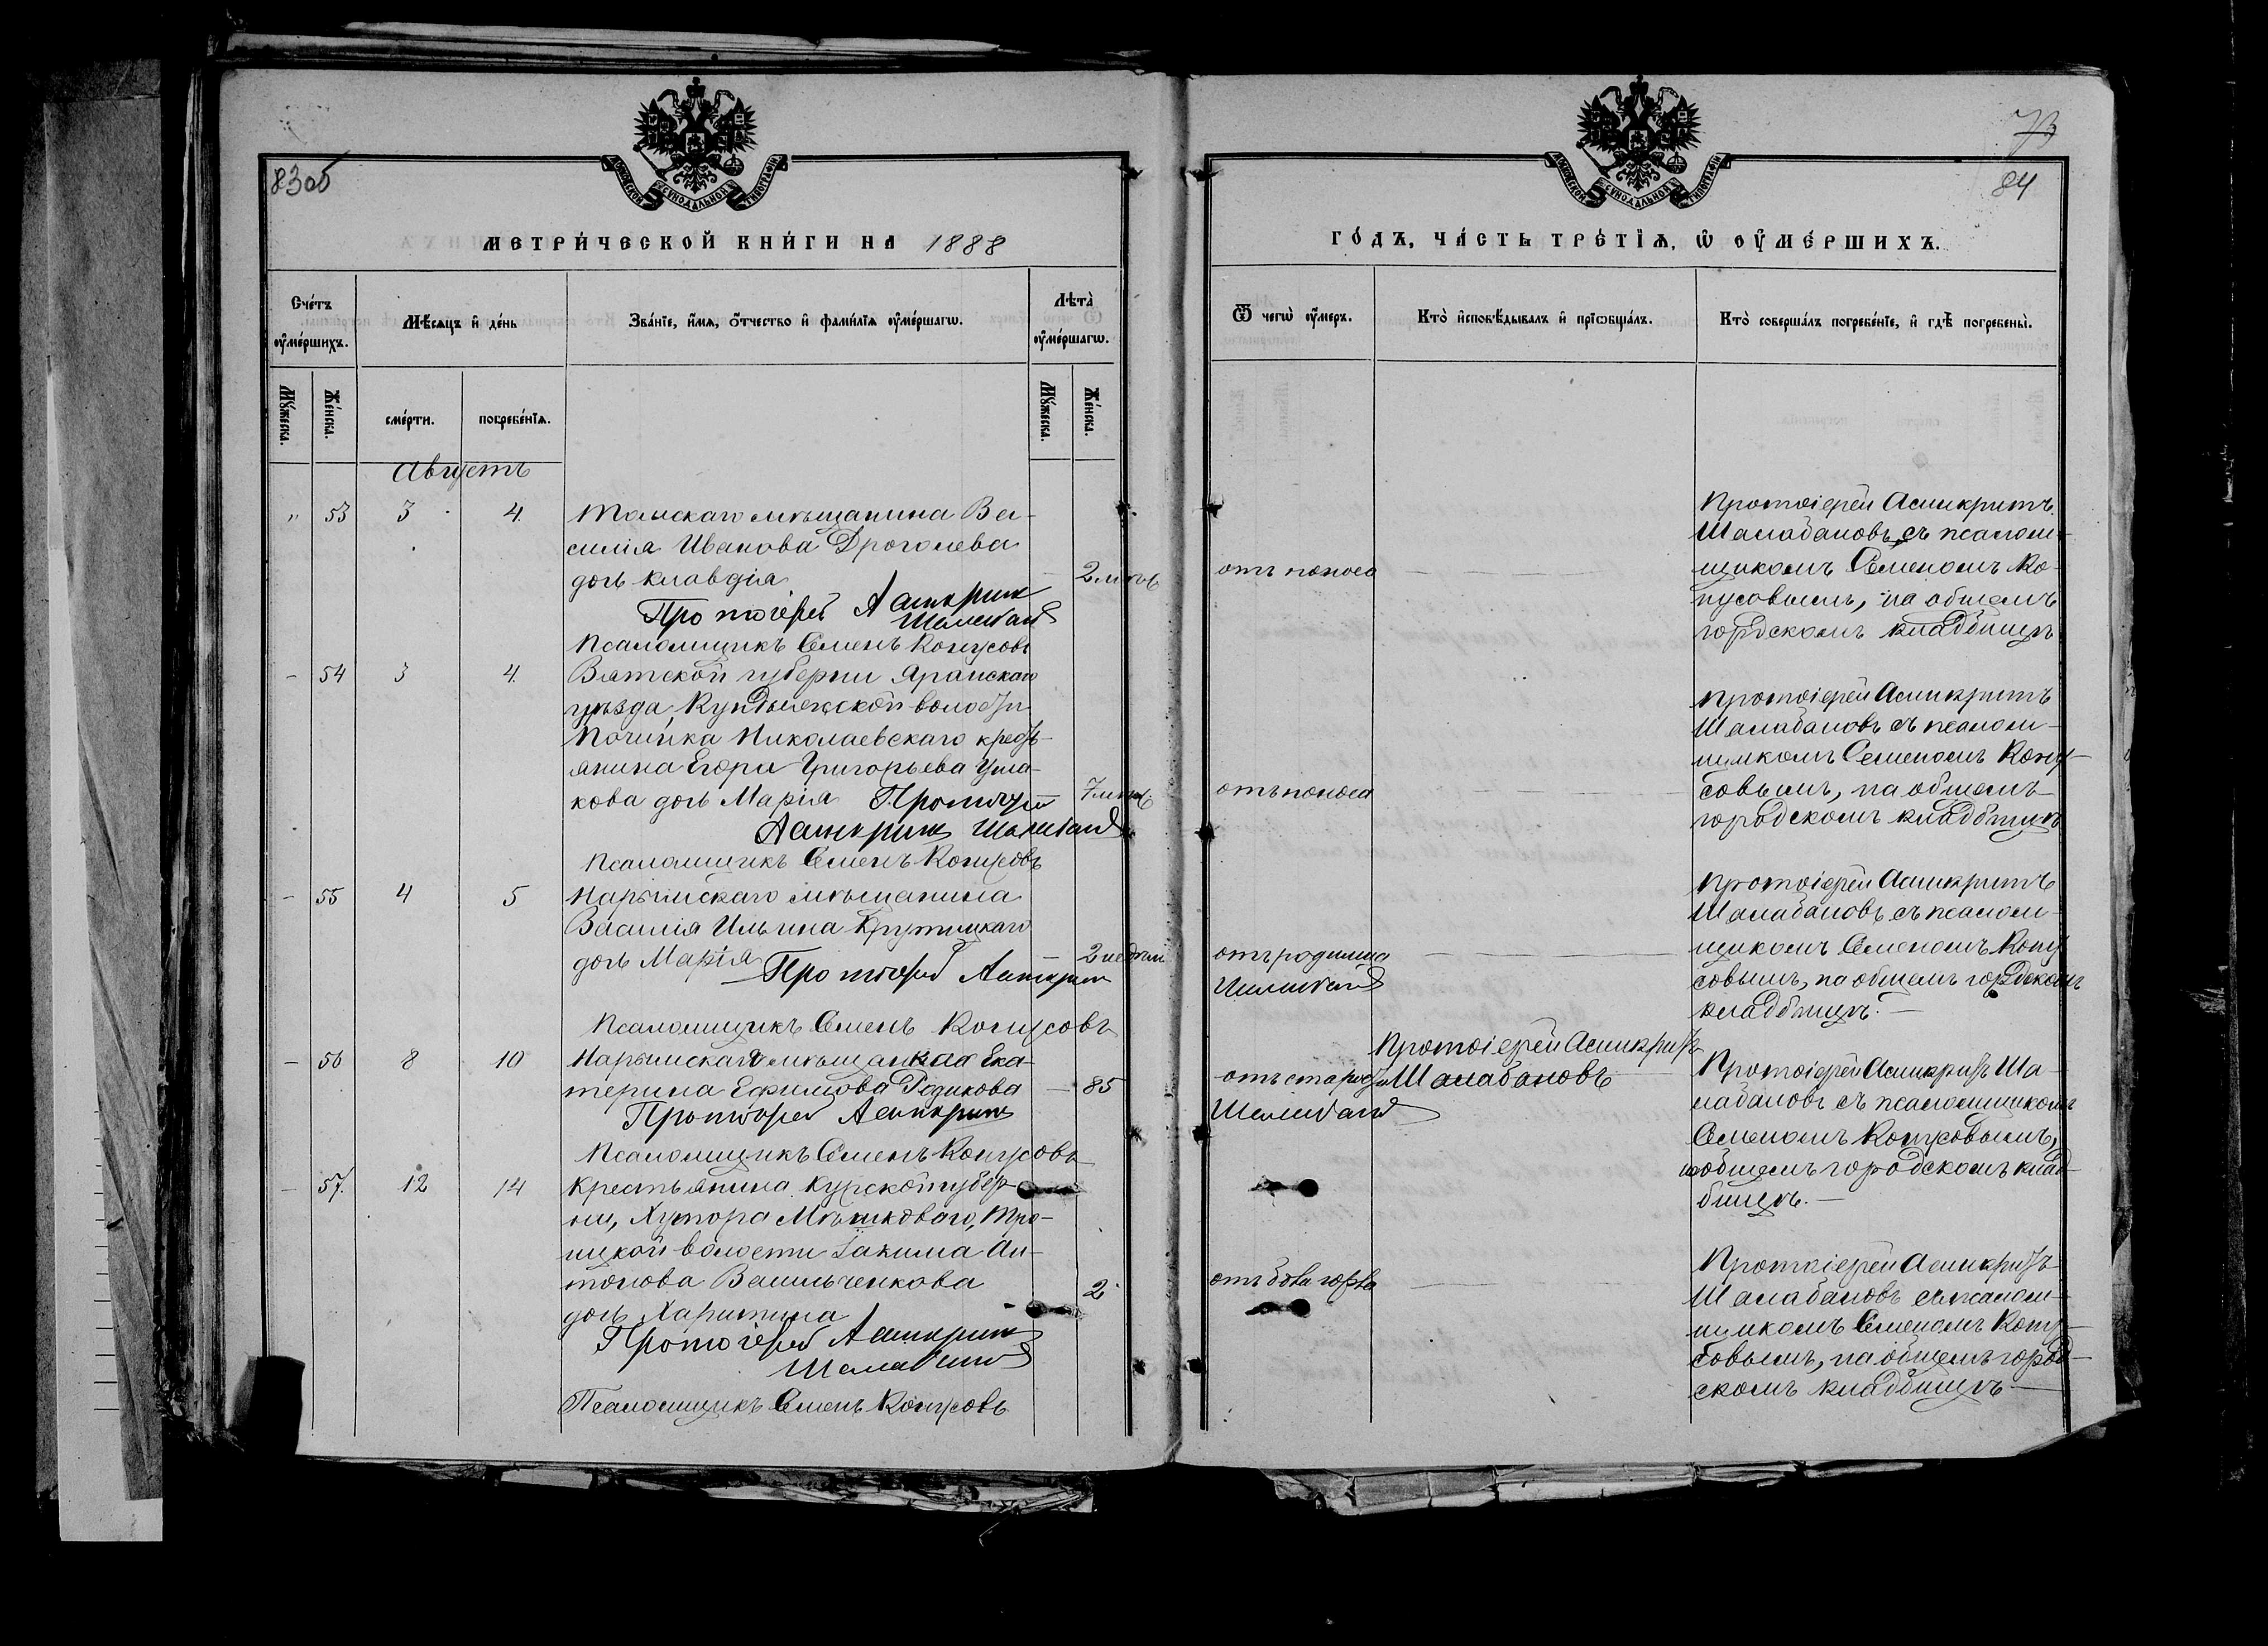 8305
МЕТРИ́ЧЕСКОЙ КНИ́ГИ НА 1888
Сче́тъ ᲂу҆ме́ршихъ.
Мѣ́сяцъ и҆ де́нь
Зва́нїе, и҆́мя, ѻ҆́тчество и҆ фами́лїя ᲂу҆ме́ршагѡ.
Лѣта̀ ᲂу҆ме́ршагѡ.
Мꙋ́жеска.
Же́нска.
сме́рти.
погребе́нїѧ.
Мꙋ́жеска.
Же́нска.
Августъ
" 53 3 4. Томскаго мѣщанина Ва-
силія Иванова Дроголева
дочь Клавдія — 2 мѣс
Протоіерей Асинкрит
Шалабанов
Псаломщикъ Семенъ Копусовъ
— 54 3 4. Вятской губерніи Яранскаго
уѣзда, волости
Починка Николаевскаго кресть-
янина Егора Григорьева Уша-
кова дочь Марія 7 мѣс.
Протоіерей
Асинкрит Шалабанов
Псаломщикъ Семенъ Копусовъ
— 55 4 5 Нарымскаго мѣщанина
Василія Ильина Крутицкаго
дочь Марія — 2 недѣли
Протоіерей Асинкрит
Псаломщикъ Семенъ Копусовъ
— 56 8 10 Нарымская мѣщанка Ека-
терина Ефимова Родикова — 85
Протоіерей Асинкрит
Псаломщикъ Семенъ Копусовъ
— 57. 12 14 Крестьянина Курской губер-
ніи, Хутора Мѣшковаго, Тро-
ицкой волости Іакима Ан-
тонова Васильченкова 2
дочь Харитина
Протоіерей Асинкрит
Шалабанов
Псаломщикъ Семенъ Копусовъ
73
84
ГО́ДЪ, ЧА́СТЬ ТРЕ́ТЇѦ, Ѡ҆ ОУ҆МЕ́РШИХЪ.
Ѿ чегѡ̀ ᲂу҆́меръ.
Кто̀ и҆сповѣ́дывалъ и҆ прїѡбща́лъ.
Кто̀ соверша́лъ погребе́нїе, и҆ гдѣ̀ погребены̀.
отъ поноса —
Протоіерей Асинкритъ
Шалабановъ съ псалом-
щикомъ Семеномъ Ко-
пусовымъ, на общемъ
городскомъ кладбищѣ
отъ поноса —
Протоіерей Асинкритъ
Шалабановъ съ псалом-
щикомъ Семеномъ Копу-
совымъ, на общемъ
городскомъ кладбищѣ
отъ родимца —
Шалабанов
Протоіерей Асинкритъ
Шалабановъ съ псалом-
щикомъ Семеномъ Копу
совымъ, на общемъ городскомъ
кладбищѣ. —
отъ старости
Шалабанов
Протоіерей Асинкритъ
Шалабановъ
Протоіерей Асинкритъ Ша-
лабановъ съ псаломщикомъ
Семеномъ Копусовымъ,
на общемъ городскомъ клад-
бищѣ. —
отъ боли горла —
Протоіерей Асинкритъ
Шалабановъ съ псалом-
щикомъ Семеномъ Копу-
совымъ, на общемъ город-
скомъ кладбищѣ —